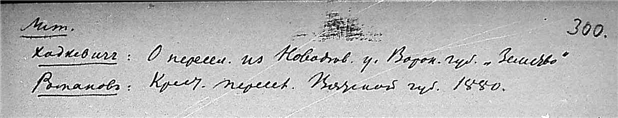 Лит. 300.
Ходкевичъ: О пересел. из Новохоп. у. Ворон. губ. „Земство"
Романовъ: Крест. пересел. Вятской губ. 1880.